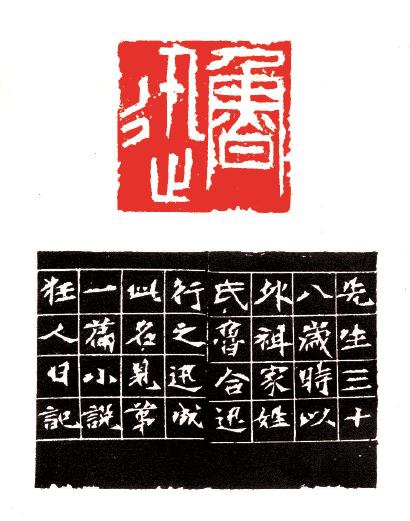 魯
迅
先生三十
八歲時以
外祖家姓
氏魯合迅
行之迅成
此名見第
一篇小說
狂人日記